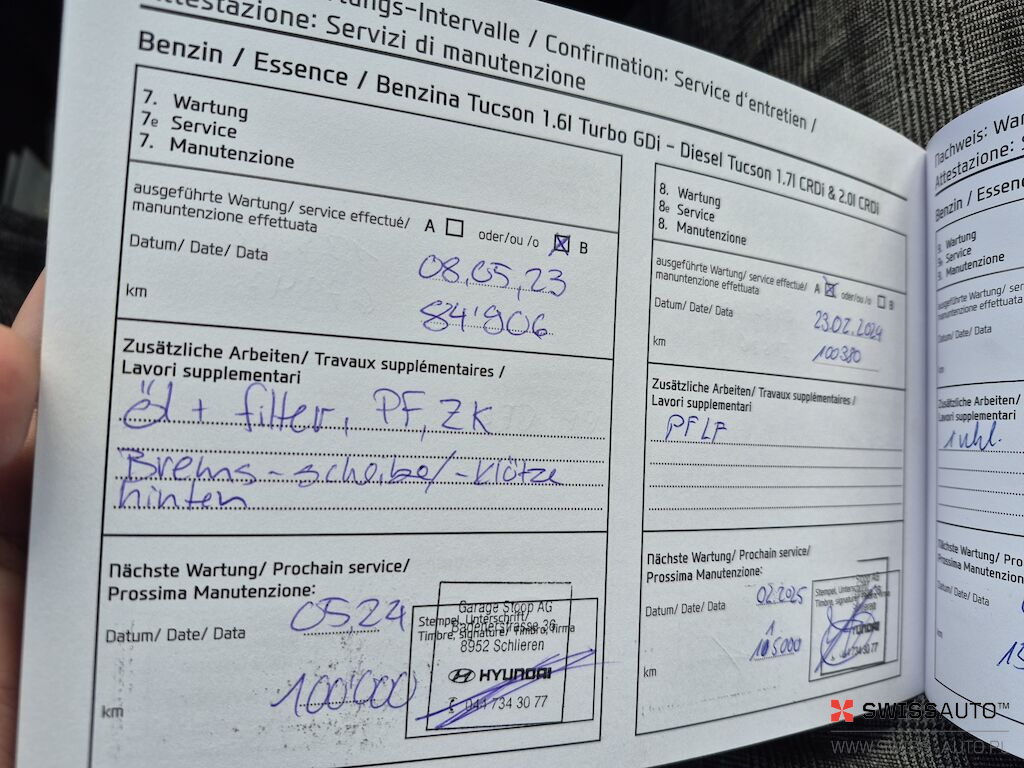 tungs-Intervalle / Confirmation: Service d'entretien /
Attestazione: Servizi di manutenzione
Benzin / Essence / Benzina Tucson 1.6l Turbo GDi - Diesel Tucson 1.7l CRDi & 2.0l CRDi
7. Wartung
7e Service
7. Manutenzione
ausgeführte Wartung/ service effectué/ A oder/ou /o B
manuntenzione effettuata
Datum/ Date/ Data 08.05.23
km 84'906
Zusätzliche Arbeiten/ Travaux supplémentaires /
Lavori supplementari
öl + filter, PF, ZK
Brems-scheibe/-klötze
hinten
Nächste Wartung/ Prochain service/
Prossima Manutenzione:
Datum/ Date/ Data 05.24
km 100'000
Garage Stoop AG
Badenerstrasse 36
Stempel, Unterschrift/
Timbre, signature/ Timbro, firma
8952 Schlieren
HYUNDAI
044 734 30 77
8. Wartung
8e Service
8. Manutenzione
ausgeführte Wartung/ service effectué/ A oder/ou /o B
manuntenzione effettuata
Datum/ Date/ Data 23.02.2024
km 100380
Zusätzliche Arbeiten/ Travaux supplémentaires /
Lavori supplementari
PFLF
Nächste Wartung/ Prochain service/
Prossima Manutenzione:
Datum/ Date/ Data 02.2025
km
Stempel, Unterschrift/
Timbre, signature/ Timbro, firma
HYUNDAI
734 30 77
Nachweis: War
Attestazione: S
Benzin / Essenc
9. Wartung
9e Service
9. Manutenzione
ausgeführte Wartung/ serv
manuntenzione effettuata
Datum/ Date/ Data
km
Zusätzliche Arbeiten/
Lavori supplementari
Nächste Wartung/ Pro
Prossima Manutenzion
Datum/ Date/ Data
km
SWISSAUTO™
WWW.SWISSAUTO.PL